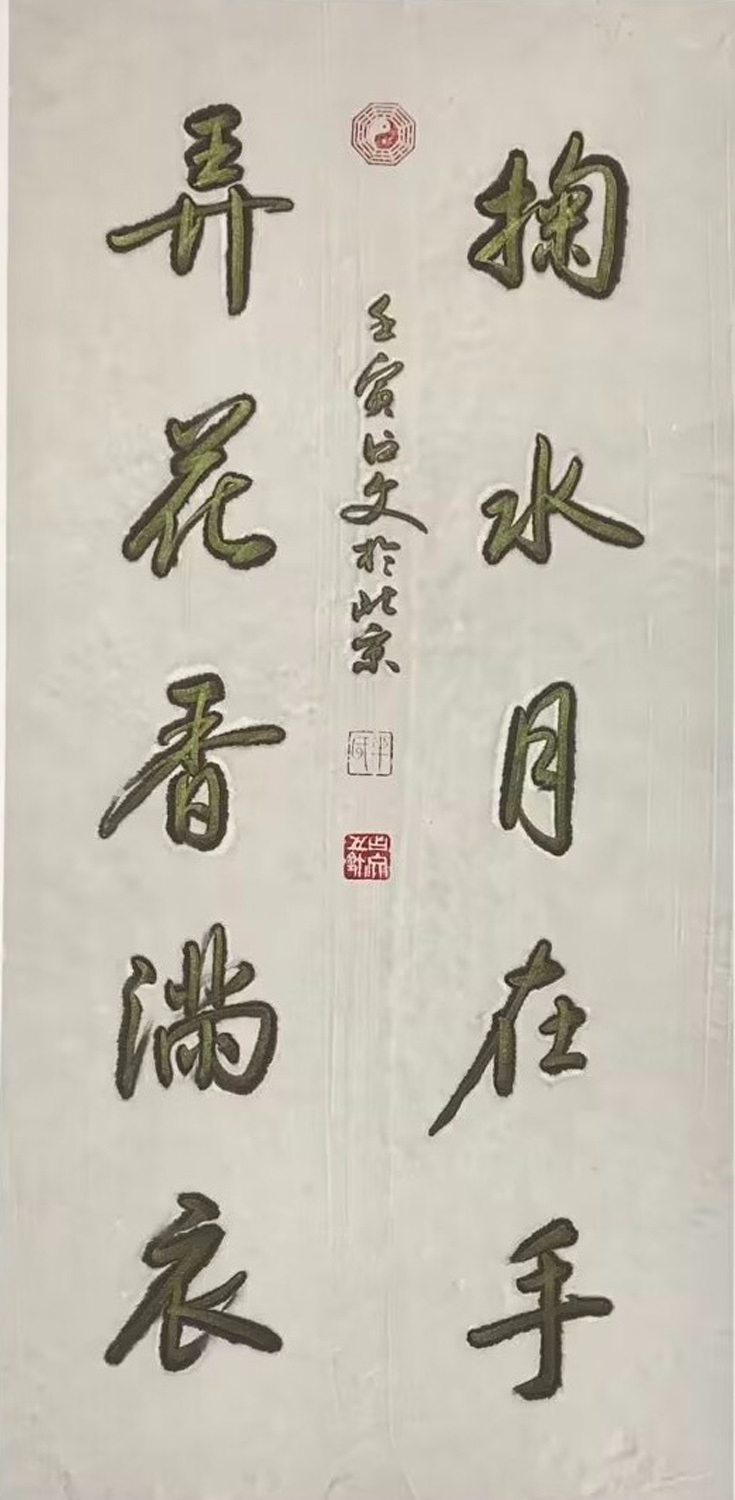 掬水月在手
弄花香满衣
壬寅文於北京